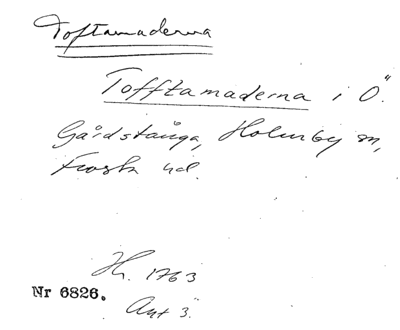 Toftamaderna
Tofftamaderna i Ö.
Gårdstånga, Holmby sn,
Frosta hd.
Hr. 1763
Nr 6826.
Akt 3.